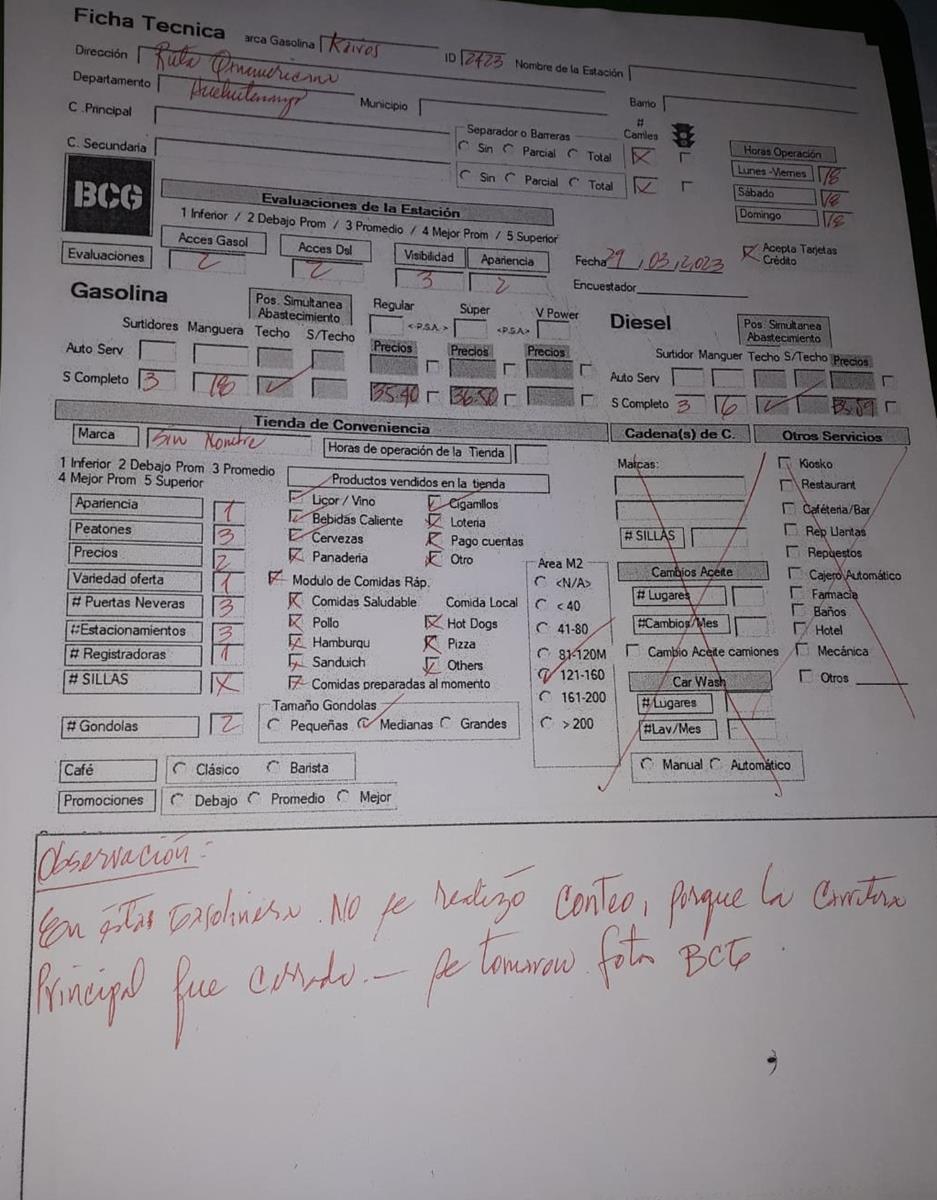 Ficha Tecnica arca Gasolina Kairos ID 2423 Nombre de la Estación
Dirección Ruta
Departamento Municipio Barrio
C .Principal Separador o Barreras # Carriles
Sin Parcial Total
C. Secundaria Sin Parcial Total
Horas Operación
Lunes -Viernes 18
Sábado 18
Domingo 18
BCG
Evaluaciones de la Estación
1 Inferior / 2 Debajo Prom / 3 Promedio / 4 Mejor Prom / 5 Superior
Acces Gasol Acces Dsl Visibilidad Apariencia
Evaluaciones 2 2 3 2
Fecha 29, 03, 2023 Acepta Tarjetas Crédito
Encuestador
Gasolina Pos. Simultanea Abastecimiento Regular Súper V Power
Surtidores Manguera Techo S/Techo <-P.S.A.-> <-P.S.A>
Precios Precios Precios
Auto Serv
S Completo 3 18 35.40 36.50
Diesel Pos. Simultanea Abastecimiento
Surtidor Manguer Techo S/Techo Precios
Auto Serv
S Completo 3 6
Tienda de Conveniencia
Marca Sin Nombre Horas de operación de la Tienda
1 Inferior 2 Debajo Prom 3 Promedio
4 Mejor Prom 5 Superior
Apariencia 1
Peatones 3
Precios 2
Variedad oferta 1
# Puertas Neveras 3
#Estacionamientos 3
# Registradoras 1
# SILLAS X
# Gondolas 2
Productos vendidos en la tienda
Licor / Vino Cigarrillos
Bebidas Caliente Loteria
Cervezas Pago cuentas
Panaderia Otro
Modulo de Comidas Ráp.
Comidas Saludable Comida Local
Pollo Hot Dogs
Hamburqu Pizza
Sanduich Others
Comidas preparadas al momento
Tamaño Gondolas
Pequeñas Medianas Grandes
Area M2
<N/A>
< 40
41-80
81-120M
121-160
161-200
> 200
Café Clásico Barista
Promociones Debajo Promedio Mejor
Cadena(s) de C.
Marcas:
# SILLAS
Cambios Aceite
# Lugares
#Cambios/Mes
Cambio Aceite camiones
Car Wash
# Lugares
#Lav/Mes
Manual Automático
Otros Servicios
Kiosko
Restaurant
Caféteria/Bar
Rep Llantas
Repuestos
Cajero Automático
Farmacia
Baños
Hotel
Mecánica
Otros
Observación:
En éstas Gasolinera. No se realizó conteo, porque la Carretera
Principal fue cerrado.— se tomaron fotos BCG